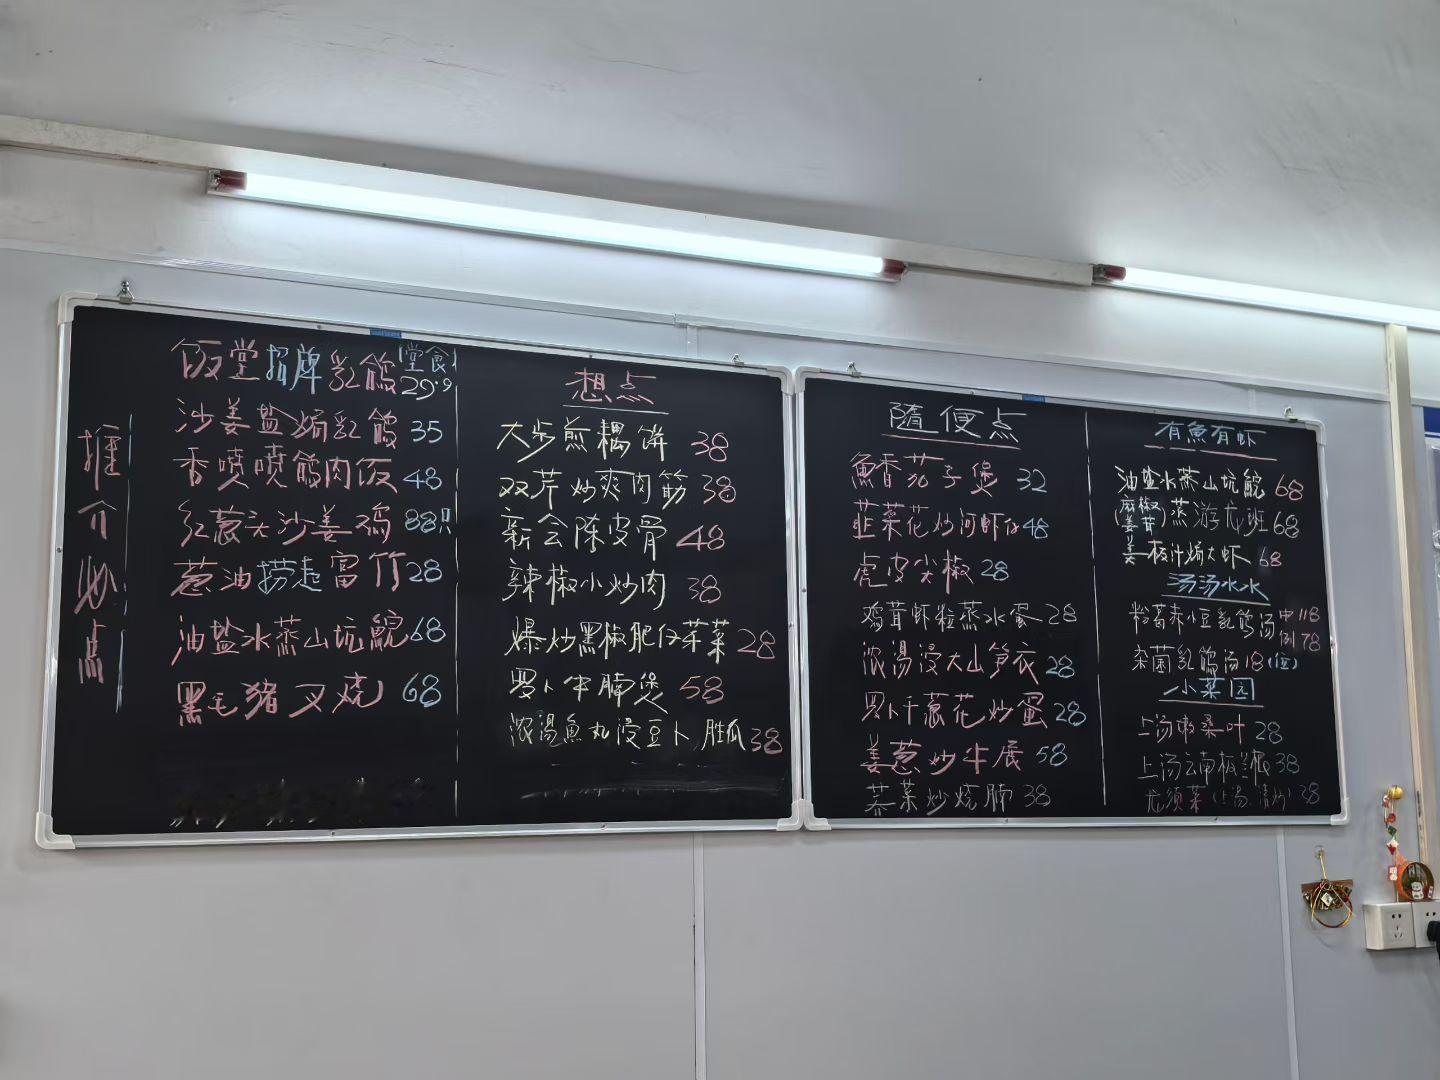 推介必点
饭堂招牌乳鸽 堂食 29.9
沙姜盐焗乳鸽 35
香喷喷鸽肉饭 48
红葱头沙姜鸡 88只
葱油捞起富竹 28
油盐水蒸山坑鲩 68
黑毛猪叉烧 68
想点
大步煎藕饼 38
双芹炒爽肉筋 38
新会陈皮骨 48
辣椒小炒肉 38
爆炒黑椒肥仔芥菜 28
罗卜牛腩煲 58
浓湯魚丸浸豆卜,胜瓜 38
隨便点
魚香茄子煲 32
韮菜花炒河虾仔 48
虎皮尖椒 28
鸡茸虾粒蒸水蛋 28
浓湯浸大山笋衣 28
罗卜干葱花炒蛋 28
姜葱炒牛展 58
芥菜炒烧腩 38
有魚有虾
油盐水蒸山坑鲩 68
(麻椒姜茸)蒸游龙班 68
姜板汁焗大虾 68
汤汤水水
粉葛赤小豆乳鸽汤 中118 例78
杂菌乳鸽汤 18(位)
小菜园
上汤嫩桑叶 28
上汤云南板兰根 38
龙须菜(上汤、清炒) 38